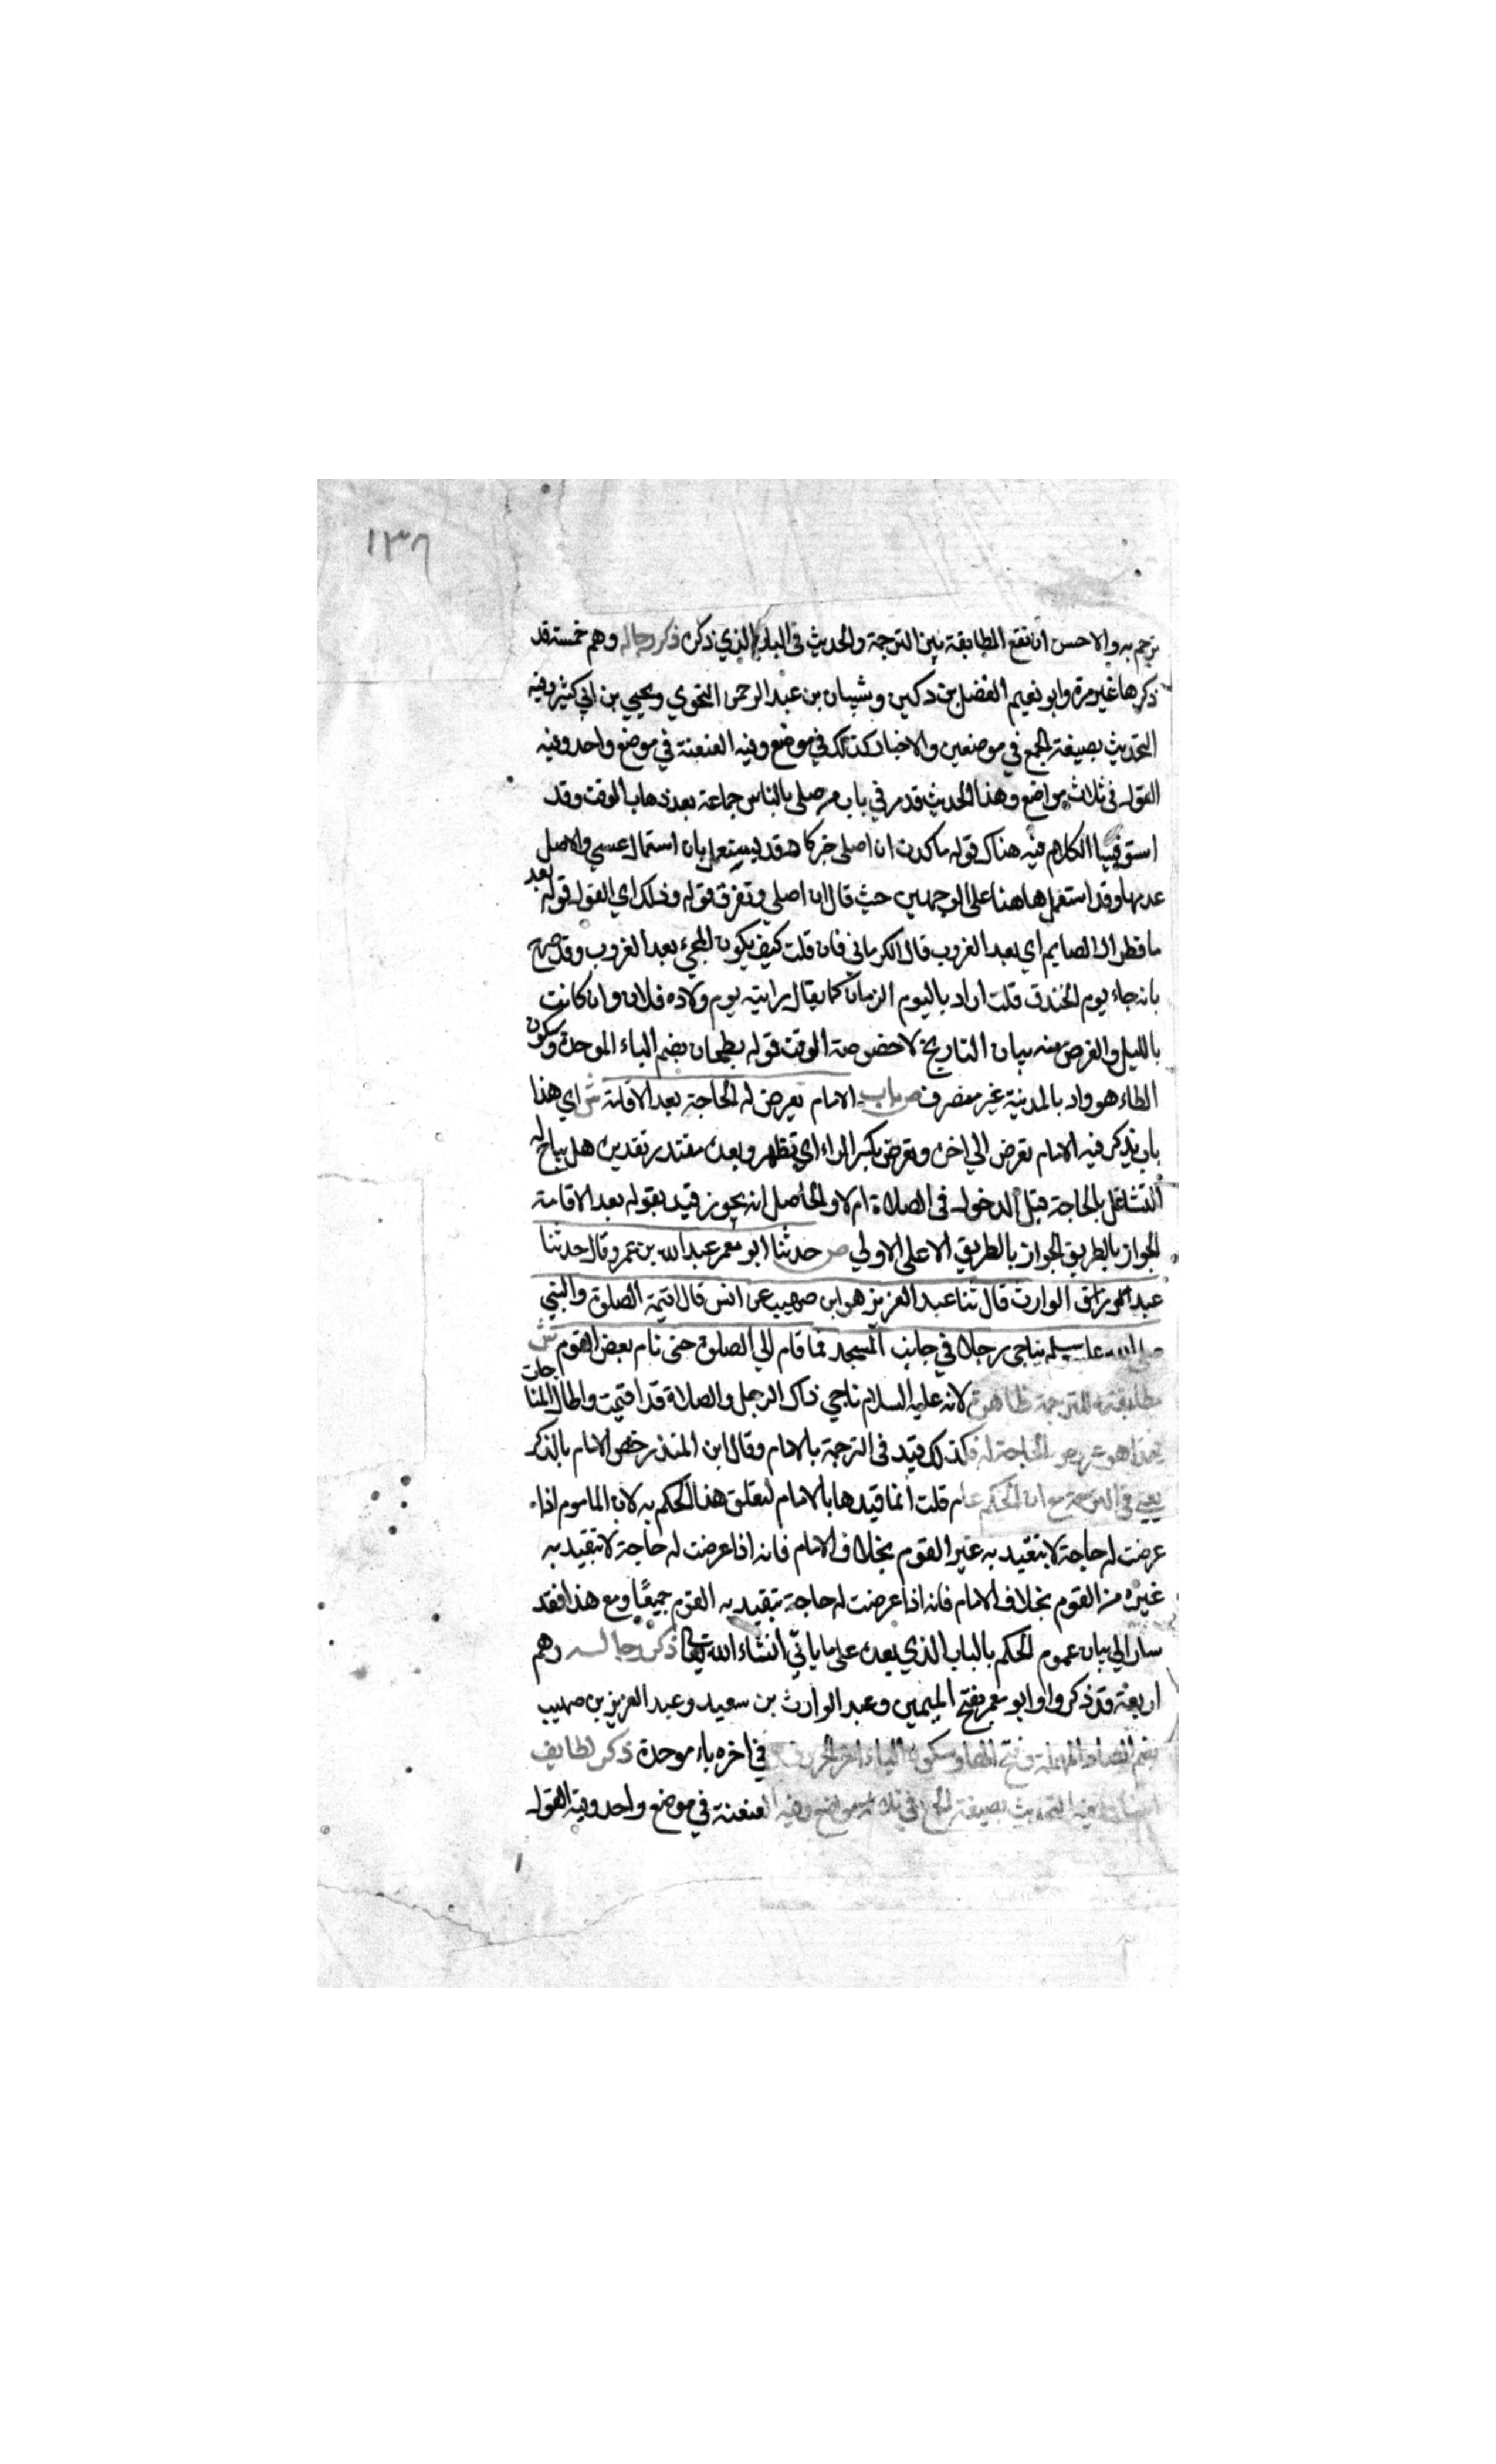 ١٣٨
يترجم به والاحسن ان تقع المطابقة بين الترجمة والحديث في الباب الذي ذكره ذكر رجاله وهم خمسة قد
ذكرها غير مرة وابو نعيم الفضل بن دكين وشيبان بن عبد الرحمن النحوي ويحيي بن ابي كثير وفيه
التحديث بصيغة الجمع في موضعين والاخبار كذلك في موضع وفيه العنعنة في موضع واحد وفيه
القول في ثلاث مواضع وهذا الحديث قد مر في باب من صلي بالناس جماعة بعد ذهاب الوقت وقد
استوفينا الكلام فيه هناك قوله ما كدت ان اصلي خبر كاد قد يستعمل بان استعمال عسي والاصل
عدمها وقد استعمل هاهنا علي الوجهين حيث قال ان اصلي وتغرق قوله وذلك اي القول قوله بعد
ما فطر الصايم اي بعد الغروب قال الكرماني فان قلت كيف يكون المجيء بعد الغروب وقد صرح
بانه جاء يوم الخندق قلت اراد باليوم الزمان كما يقال رايته يوم ولاده فلان وان كانت
بالليل والغرض منه بيان التاريخ لا خصوصة الوقت قوله بطحان بضم الباء الموحدة وسكون
الطاء هو واد بالمدينة غير منصرف ص باب الامام يعرض له الحاجة بعد الاقامة ش اي هذا
باب يذكر فيه الامام تعرض الي اخره وتعرض بكسر الراء اي تظهر وبعده مقتدر تقديره هل يباح له
التشاغل بالحاجة قبل الدخول في الصلاة ام لا والحاصل انه يجوز قيد بقوله بعد الاقامة
الجواز بالطريق الجواز بالطريق الاعلي الاولي ص حدثنا ابو معمر عبد الله بن عمرو قال حدثنا
عبد الوارث قال ثنا عبد العزيز هو ابن صهيب عن انس قال اقيمة الصلوة والنبي
صلي الله عليه وسلم يناجي رجلا في جانب المسجد فما قام الي الصلوة حتي نام بعض القوم ش
مطابقته للترجمة ظاهرة لانه عليه السلام ناجي ذاك الرجل والصلاة قد اقيمت واطال المناجات
فهذا هو عروض الحاجة له فكذلك قيد في الترجمة بالامام وقال ابن المنذر خص الامام بالذكر
يعني في الترجمة مع ان الحكم عام قلت انما قيدها بالامام لتعلق هذا الحكم به لان الماموم اذا
عرضت له حاجة لا يتقيد به غير القوم بخلاف الامام فانه اذا عرضت له حاجة لا تتقيد به
غيره من القوم بخلاف الامام فانه اذا عرضت له حاجة تتقيد به القوم جميعًا ومع هذا فقد
سار الي بيان عموم الحكم بالباب الذي بعده علي ما ياتي انشاء الله تعالي ذكر رجاله وهم
اربعة قد ذكروا وابو معمر بفتح الميمين وعبد الوارث بن سعيد وعبد العزيز بن صهيب
بضم الصاد المهملة وفتح الهاء وسكون الياء اخر الحروف في اخره باء موحدة ذكر لطايف
اسناده فيه التحديث بصيغة الجمع في ثلاثة مواضع وفيه العنعنة في موضع واحد وفيه القول